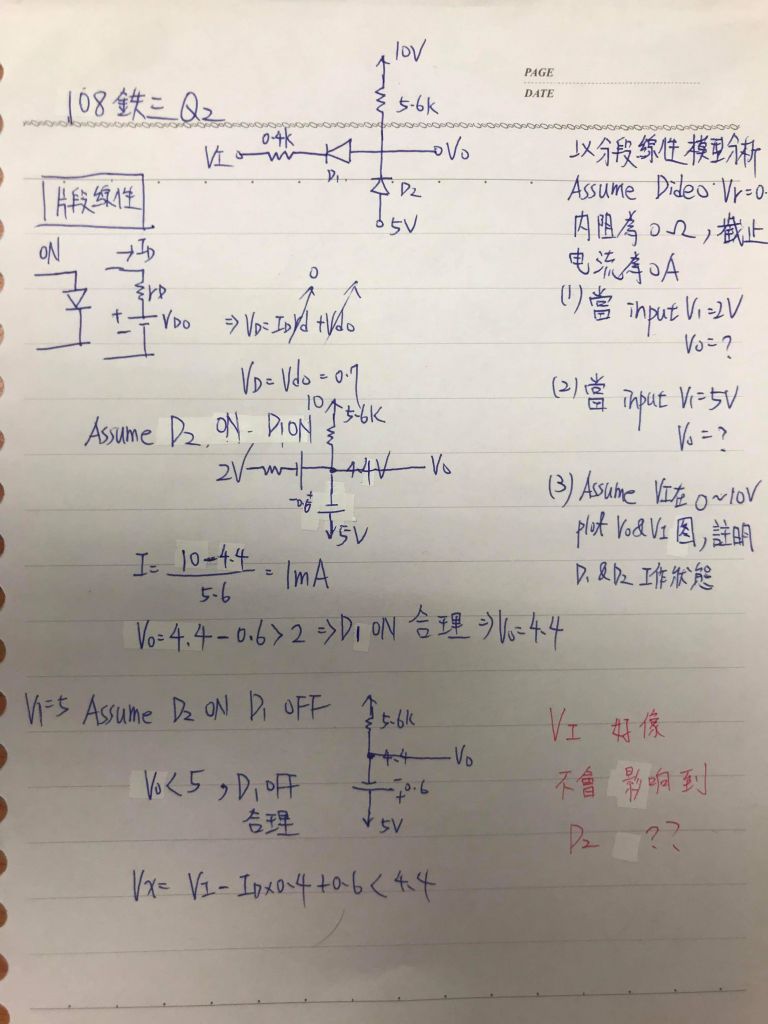 PAGE
DATE
108 鉄三 Q2
10V
5.6K
0.4K
VI
D1
Vo
D2
5V
以分段線性模型分析
Assume Dideo Vr=0.
内阻為 0Ω, 截止
电流為 0A
(1) 當 input VI=2V
Vo=?
(2) 當 input VI=5V
Vo=?
(3) Assume VI在 0~10V
plot Vo&VI 图, 註明
D1&D2 工作狀態
片段線性
ON
→ID
rD
+
-
VDO
⇒ VD=IDrd+Vdo
0
VD=Vdo=0.7
Assume D2 ON. D1 ON
10
5.6K
2V
4.4V
Vo
-0.6+
5V
I=10-4.4/5.6=1mA
Vo=4.4-0.6>2⇒D1 ON 合理⇒Vo=4.4
VI=5 Assume D2 ON D1 OFF
5.6K
4.4
Vo
-
+0.6
5V
Vo<5, D1 OFF
合理
Vx= VI-ID×0.4+0.6<4.4
VI 好像
不會 影响到
D2 ??